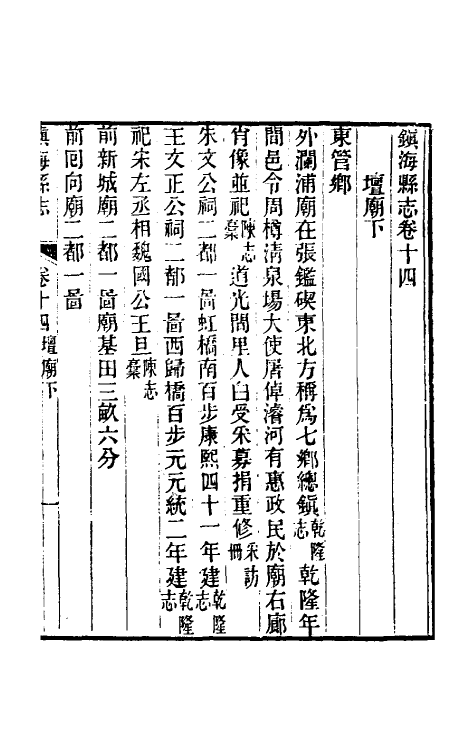 鎮海縣志卷十四
壇廟下
東管鄉
外瀾浦廟在張鑑碶東北方稱爲七鄉總鎮乾隆志乾隆年
間邑令周樽淸泉場大使屠倬濬河有惠政民於廟右廊
肖像並祀陳志稾道光間里人白受采募捐重修采訪冊
朱文公祠二都一啚虹橋南百步康熙四十一年建乾隆志
王文正公祠二都一啚西歸橋百步元元統二年建乾隆志
祀宋左丞相魏國公王旦陳志稾
前新城廟二都一啚廟基田三畝六分
前囘向廟二都一啚
鎮海縣志 卷十四 壇廟下 一